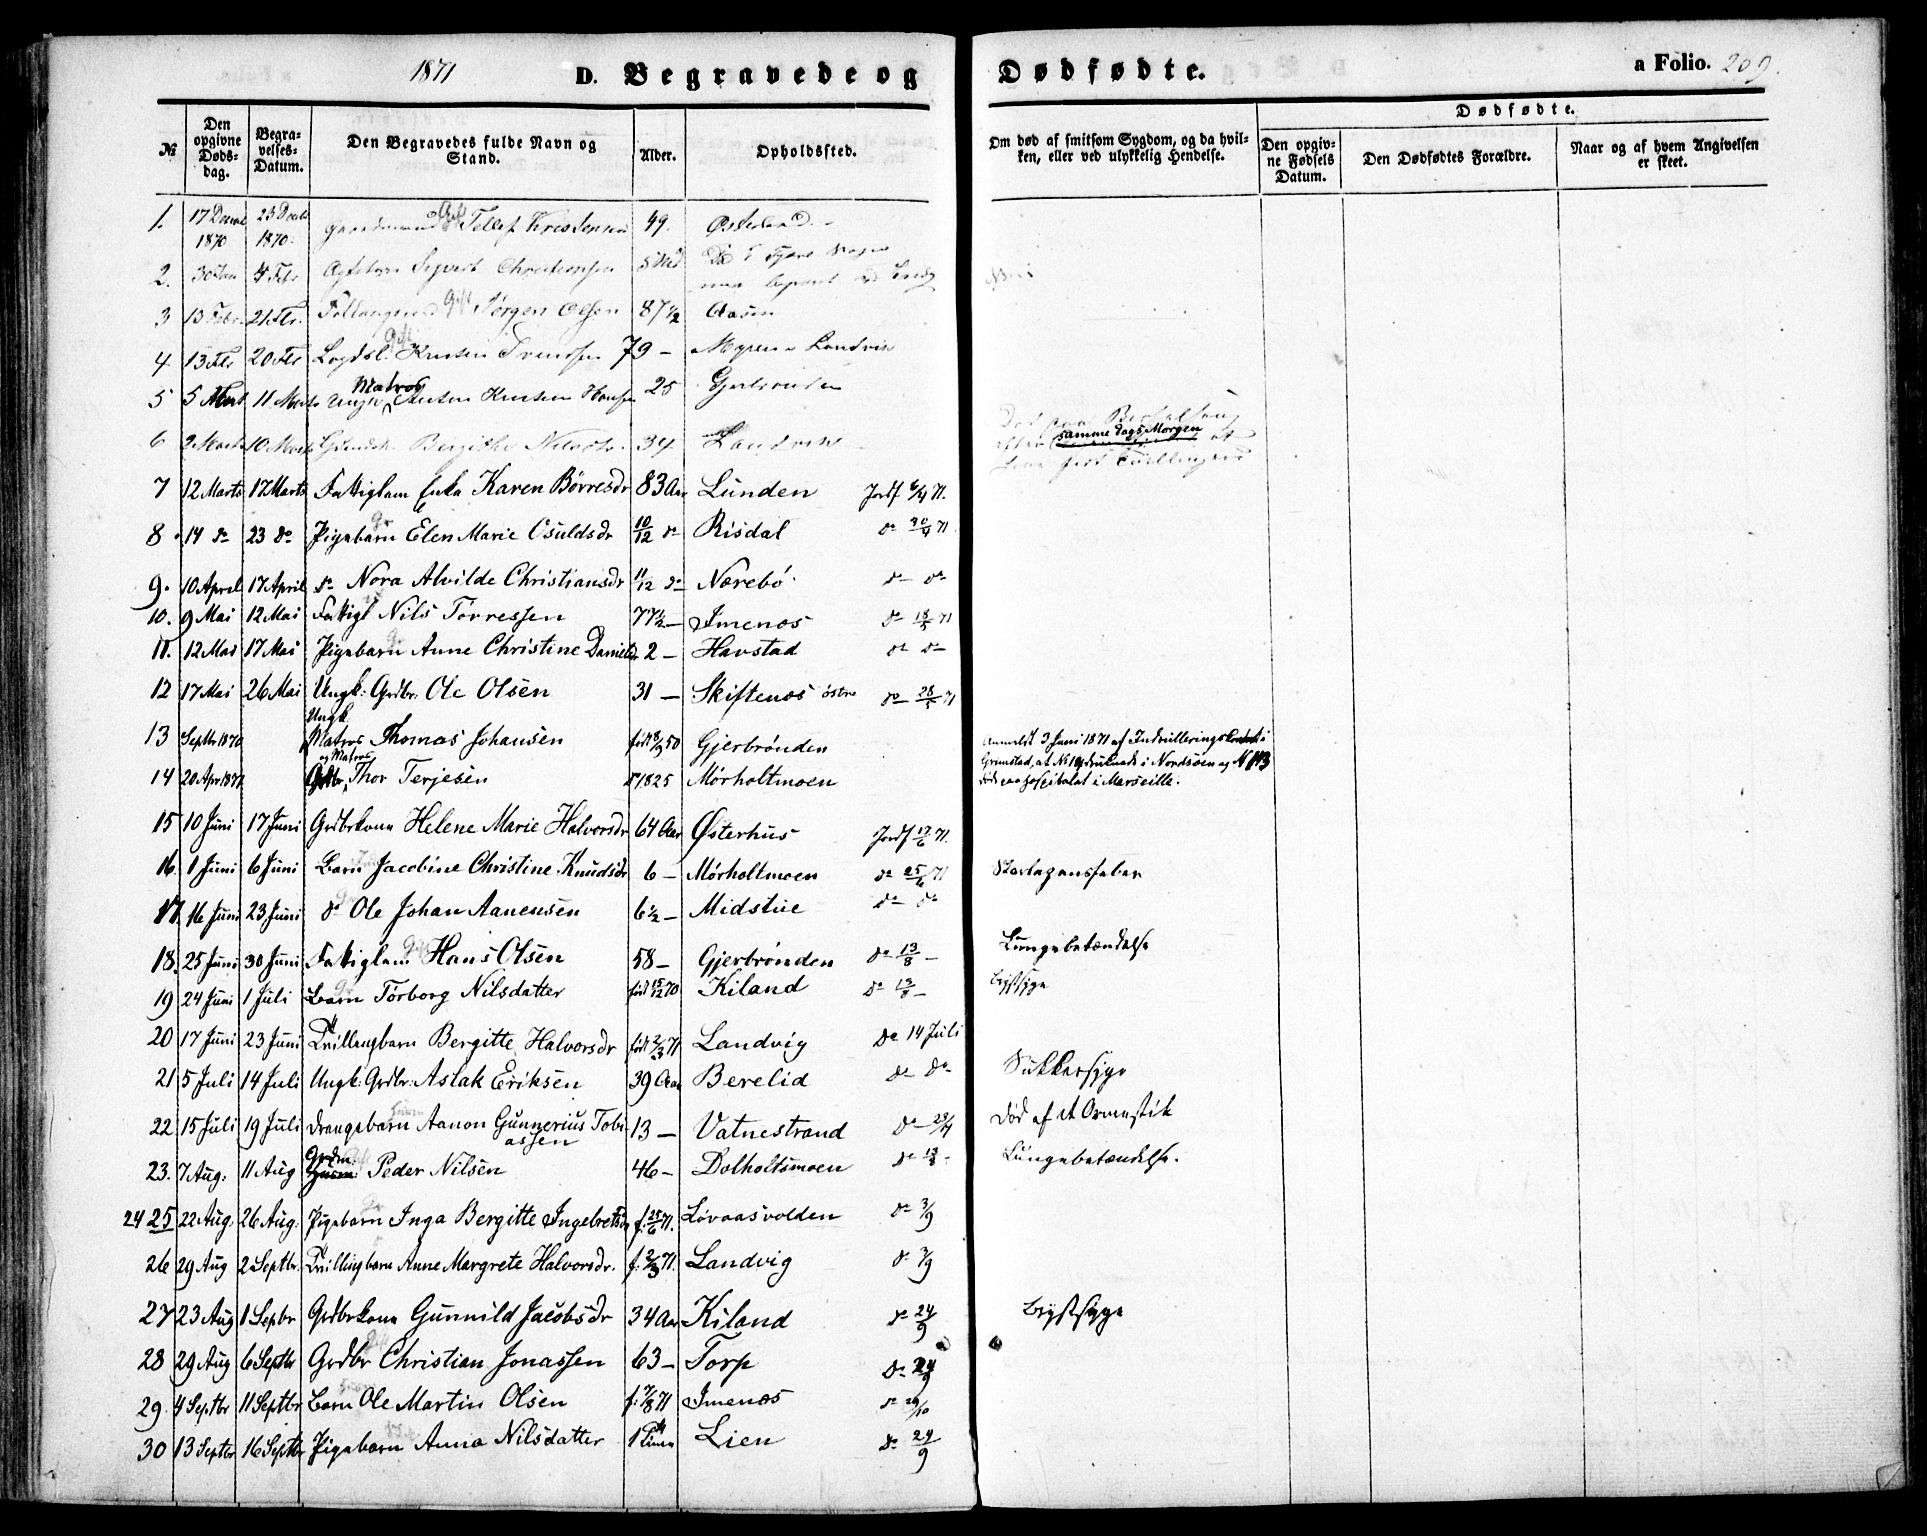 1871
D. Begravede og Dødfødte.
a Folio. 209.
№
Den opgivne Døds-dag.
Begra-velses-Datum.
Den Begravedes fulde Navn og Stand.
Alder.
Opholdssted.
Om død af smitsom Sygdom, og da hvil-ken, eller ved ulykkelig Hendelse.
Dødfødte.
Den opgiv-ne Fødsels Datum.
Den Dødfødtes Forældre.
Naar og af hvem Angivelsen er skeet.
1. 17 Decbr 1870 23 Decbr 1870. Gift Tellef Kristensen 49. Østerhus
2. 30 Jan 4 Febr Sivert Christensen
3 13 Febr. 21 Febr. Gift Jørgen Olsen 87 1/2 Aasen
4 13 Febr 20 Febr Gift Knuten 79 – Myren Landvik
5 5 Marts 11 Marts Ungk Matros Anton Knutsen Hansen 25 Gjerbrønden
6 2 Marts 10 Marts Bergithe Nilsdtr. 34 Landvik samme dags Morgen
7 12 Marts 17 Marts Fattiglem Enke Karen Børresdr 83 Aar Lunden Jordf 6/4 71.
8 14 do 23 do Pigebarn Elen Marie Osuldsdr 10/12 do Risdal do 30/4 71
9. 10 April 17 April do Nora Alvilde Christiansdr 11/12 do Nærebø do do
10. 9 Mai 12 Mai Fattigl Nils Torressen 77 1/2 – Imenæs do 18/5 71
11. 12 Mai 17 Mai Pigebarn Anne Christine Danielsdr 2 – Havstad do do
12 17 Mai 26 Mai Ungk: Grdbr: Ole Olsen 31 – Skiftenæs østre do 28/5 71
13 Septbr 1870 Ungk Matros Thomas Johansen født 8/9 50 Gjerbrønden Anmeldt 3 Juni 1871 af Indrulleringskontoret i
14 20 Apr 1871 Grdbr og Matros Thor Terjesen do 1825 Mørholtmoen Grimstad, at No 13 druknede i Nordsøen og No 14 døde paa hospitalet i Marseille.
15 10 Juni 17 Juni Grdbrkone Helene Marie Halvorsdr 64 Aar Østerhus Jordf 17/6 71.
16. 1 Juni 6 Juni Barn Jacobine Christine Knudsdr 6 – Mørholtmoen do 25/6 71 Skarlagensfeber
17. 16 Juni 23 Juni do Ole Johan Aanensen 6 1/2 – Midstue do do
18. 25 Juni 30 Juni Fattiglem Gift Hans Olsen 58 – Gjerbrønden do 13/8 – Lungebetændelse
19 24 Juni 1 Juli Barn Torborg Nilsdatter født 15/12 70 Kiland do 13/8 – Brystsyge
20 17 Juni 23 Juni Trillingbarn Bergitte Halvorsdr født 2/3 71 Landvig do 14 Juli
21 5 Juli 14 Juli Ungk: Grdbr: Aslak Eriksen 39 Aar Berelid do do Sukkersyge
22 15 Juli 19 Juli Drengebarn Aanon Gunnerius Tobiassen 13 – Vatnestrand do 23/7 Død af et Ormestik
23. 7 Aug: 11 Aug Grdm: Peder Nilsen 46 – Dolholtsmoen do 13/8 – Lungebetændelse.
24 25 22 Aug: 26 Aug: Pigebarn Inga Bergitte Ingebretsdr f. 25/6 71. Lovaasvolden do 3/9
26 29 Aug 2 Septbr. Trillingbarn Anne Margrete Halvorsdr. f. 2/3 71. Landvig do 3/9
27 23 Aug 1 Sepbr Grdbrkone Gunnild Jacobsdr 34 Aar Kiland do 24/9 Brystsyge
28 29 Aug 6 Septbr Grdbr Christian Jonassen 63 – Torp do 24/9
29. 4 Septbr 11 Septbr Barn Ole Martin Olsen f. 7/8 71 Imenæs do 29/10
30 13 Septbr 16 Septbr Pigebarn Anna Nilsdatter 1 Time Lien do 24/9